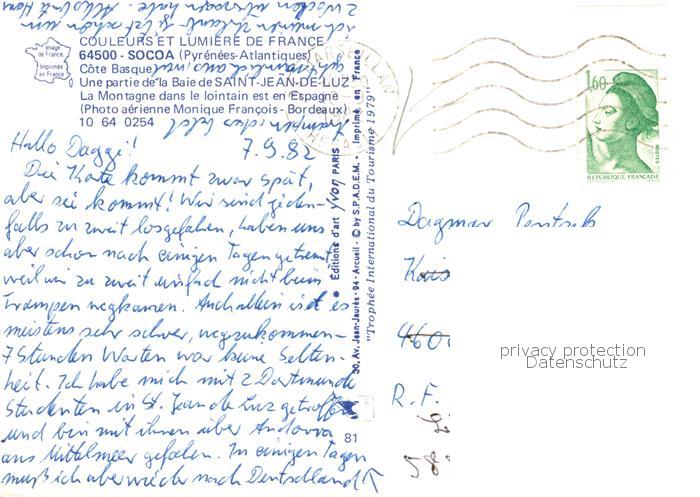 Image
de France
Imprimée
en France
COULEURS ET LUMIÈRE DE FRANCE
64500 - SOCOA (Pyrénées-Atlantiques)
Côte Basque
Une partie de la Baie de SAINT-JEAN-DE-LUZ
La Montagne dans le lointain est en Espagne
(Photo aérienne Monique François - Bordeaux)
10 64 0254
Hallo Daggi!
7.9.82
Die Karte kommt zwar spät,
aber sie kommt! Wir sind
falls zu zweit losgefahren, haben uns
aber schon nach einigen Tagen getrennt
weil wir zu zweit einfach nicht beim
Trampen wegkamen. Auch allein ist es
meistens sehr schwer, wegzukommen -
7 Stunden Warten war keine Selten-
heit. Ich habe mich mit 2 Dortmunder
Studenten in St. Jean de Luz getroffen
und bin mit ihnen über Andorra
ans Mittelmeer gefahren. In einigen Tagen
muß ich aber wieder nach Deutschland
81
* Éditions d'art yvon PARIS *
30, Av. Jean-Jaurès - 94 - Arcueil - © by S.P.A.D.E.M. - Imprimé en France
"Trophée International du Tourisme 1979"
1,60
REPUBLIQUE FRANÇAISE
POSTES
Dagmar
460
R. F.
privacy protection
Datenschutz